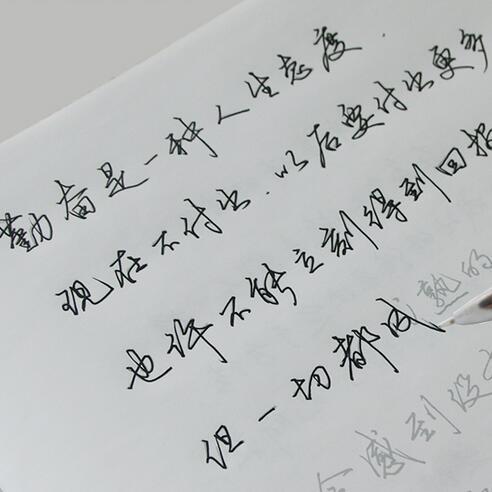 勤奋是一种人生态度.
现在不付出.以后要付出更多
也许不能立刻得到回报
但一切都成熟的
会感到没